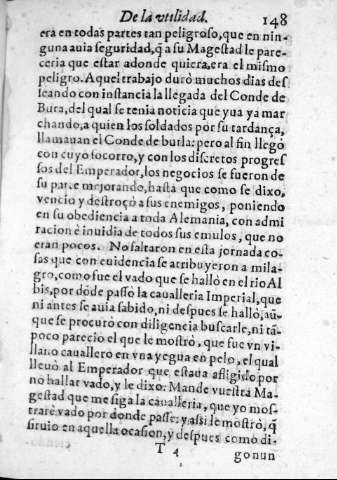 De la vtilidad. 148
era en todas partes tan peligroso, que en nin-
guna auia seguridad, q̃ a su Magestad le pare-
ceria que estar adonde quiera, era el mismo
peligro. Aquel trabajo durò muchos dias des
seando con instancia la llegada del Conde de
Bura, del qual se tenia noticia que yua ya mar
chando, a quien los soldados por su tardança,
llamauan el Conde de burla: pero al fin llegò
con cuyo socorro, y con los discretos progres
sos del Emperador, los negocios se fueron de
su parte mejorando, hasta que como se dixo,
vencio y destroçò a sus enemigos, poniendo
en su obediencia a toda Alemania, con admi
racion è inuidia de todos sus emulos, que no
eran pocos. No faltaron en esta jornada co-
sas que con euidencia se atribuyeron a mila-
gro, como fue el vado que se hallò en el rio Al
bis, por dõde passò la caualleria Imperial, que
ni antes se auia sabido, ni despues se hallò, aũ-
que se procurò con diligencia buscarle, ni tã-
poco parecio el que le mostrò, que fue vn vi-
llano cauallero en vna yegua en pelo, el qual
lleuò al Emperador que estaua afligido por
no hallar vado, y le dixo: Mande vuestra Ma-
gestad que me siga la caualleria, que yo mos-
trarè vado por donde passe: y assi le mostrò, q̃
siruio en aquella ocasion, y despues como di-
T 4 gonun